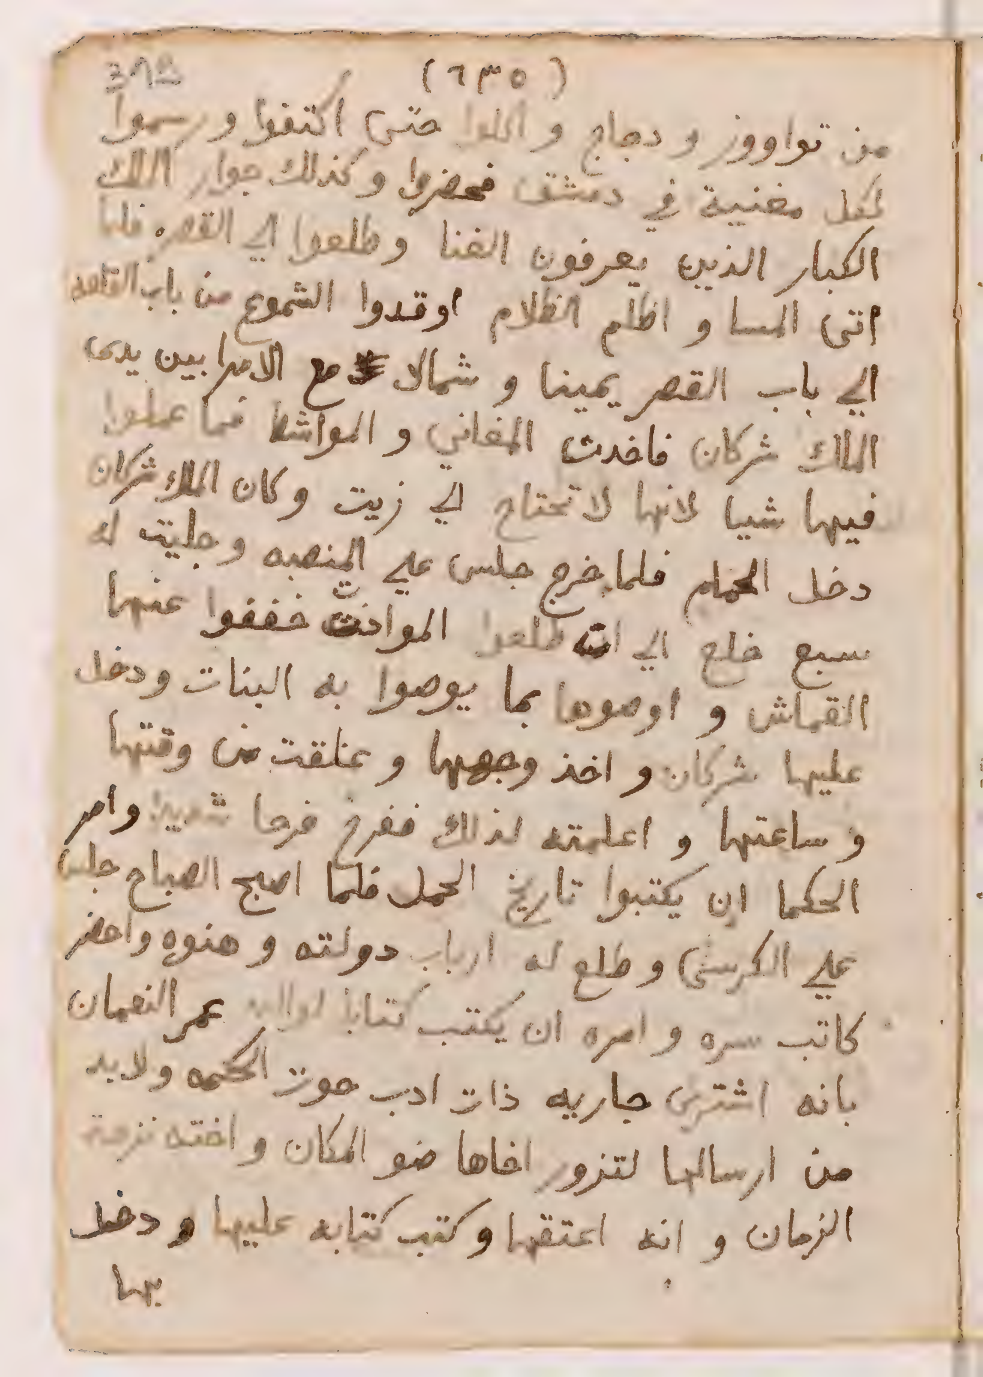 (٦٣٥)
من تواووز و دجاج و اكلوا حتى اكتفوا و رسموا
لكل مغنية في دمشق فحضروا و كذلك جوار الملك
الكبار الذين يعرفون الغنا و طلعوا الي القصر فلما
اتى المسا و اظلم الظلام اوقدوا الشموع من باب القلعه
الي باب القصر يمينا و شمالا مع الامرا بين يدى
الملك شركان فاخدت المغاني و المواشط فما عملوا
فيها شيا لانها لا تحتاج الي زيت و كان الملك شركان
دخل الحمام فلما خرج جلس علي المنصبه و جليت له
سبع خلع الي ان طلعوا خففوا عنها
القماش و اوصوها بما يوصوا به البنات و دخل
عليها شركان و اخذ وجهها و علقت من وقتها
و ساعتها و اعلمته لذلك ففرح فرحا شديدا و امر
الحكما ان يكتبوا تاريخ الحمل فلما اصبح الصباح جلس
علي الكرسي و طلع له ارباب دولته و هنوه و احضر
كاتب سره و امره ان يكتب كتابا لوالده عمر النعمان
بانه اشترى جاريه ذات ادب حوت الحكمه و لابد
من ارسالها لتزور اخاها ضو المكان و اخته نزهة
الزمان و انه اعتقها و كتب كتابه عليها و دخل
بها